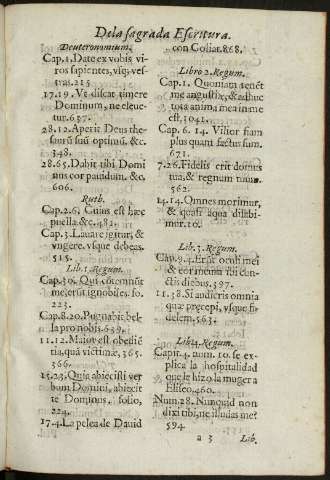 De la sagrada Escritura.
Deuteronomium.
Cap. 1. Date ex vobis vi
ros sapientes, usq; ves
tras. 215
17. 19. Vt discat timere
Dominum, ne eleue
tur. 637.
28. 12. Aperit Deus the
saurũ suũ optimũ. &c.
348.
28. 65. Dabit tibi Domi
nus cor pauidum. &c.
606.
Ruth.
Cap. 2. 6. Cuius est hæc
puella. &c. 482.
Cap. 3. Lauare igitur, &
vngere. vsque debeas.
515.
Lib. 1. Regum.
Cap. 30. Qui cõtemnũt
me, erũt ignobiles. fo.
223.
Cap. 8. 20. Pugnabit bel
la pro nobis. 639.
11. 12. Maior est obediẽ
tia, quã victimæ. 365.
366.
15. 23. Quia abiecisti ver
bum Domini, abiecit
te Dominus, folio,
224.
17. 4. La pelea de Dauid
con Goliat. 868.
Libro 2. Regum.
Cap. 1. Quoniam tenẽt
me angustiæ, & adhuc
tota anima mea in me
est. 3041.
Cap. 6. 14. Vilior fiam
plus quam factus sum.
671.
7. 26. Fidelis erit domus
tua, & regnum tuum.
562.
14. 14. Omnes morimur,
& quasi aqua dilabi-
mur. 10.
Lib. 3. Regum.
Cap. 9. 4. Erũt oculi mei
& cor meum ibi cun-
ctis diebus. 397.
11. 38. Si audieris omnia
quæ præcepi, vsque fi-
delem. 563.
Lib. 4. Regum.
Capit. 4. num. 10. se ex-
plica la hospitalidad
que le hizo la muger a
Eliseo. 460.
Num. 28. Nunquid non
dixi tibi, ne illudas me?
594
a 3 Lib.